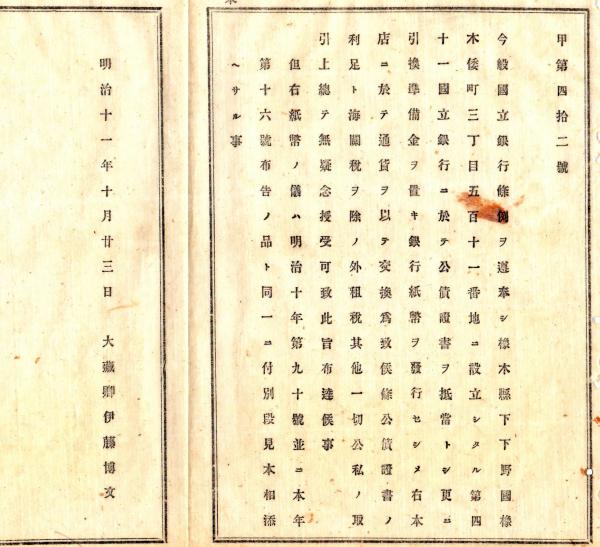 甲第四拾二號
今般國立銀行條例ヲ遵奉シ橡木縣下下野國橡
木倭町三丁目五百十一番地ニ設立シタル第四
十一國立銀行ニ於テ公債證書ヲ抵當トシ更ニ
引換準備金ヲ置キ銀行紙幣ヲ發行セシメ右本
店ニ於テ通貨ヲ以テ交換爲致候條公債證書ノ
利足ト海關稅ヲ除ノ外租稅其他一切公私ノ取
引上總テ無疑念授受可致此旨布達候事
但右紙幣ノ儀ハ明治十年第九十號並ニ本年
第十六號布告ノ品ト同一ニ付別段見本相添
ヘサル事
明治十一年十月廿三日 大藏卿伊藤博文